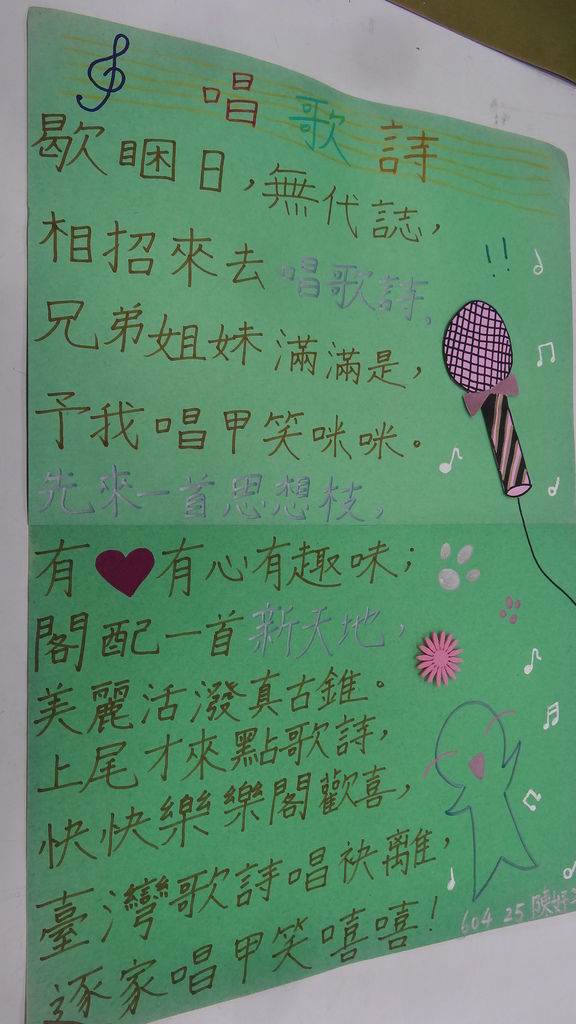 唱歌詩
歇睏日,無代誌,
相招來去唱歌詩,
!!
兄弟姐妹滿滿是,
予我唱甲笑咪咪。
先來一首思想枝,
有♥有心有趣味;
閣配一首新天地,
美麗活潑真古錐。
上尾才來點歌詩,
快快樂樂閣歡喜,
臺灣歌詩唱袂離,
逐家唱甲笑嘻嘻!
604 25 陳妤